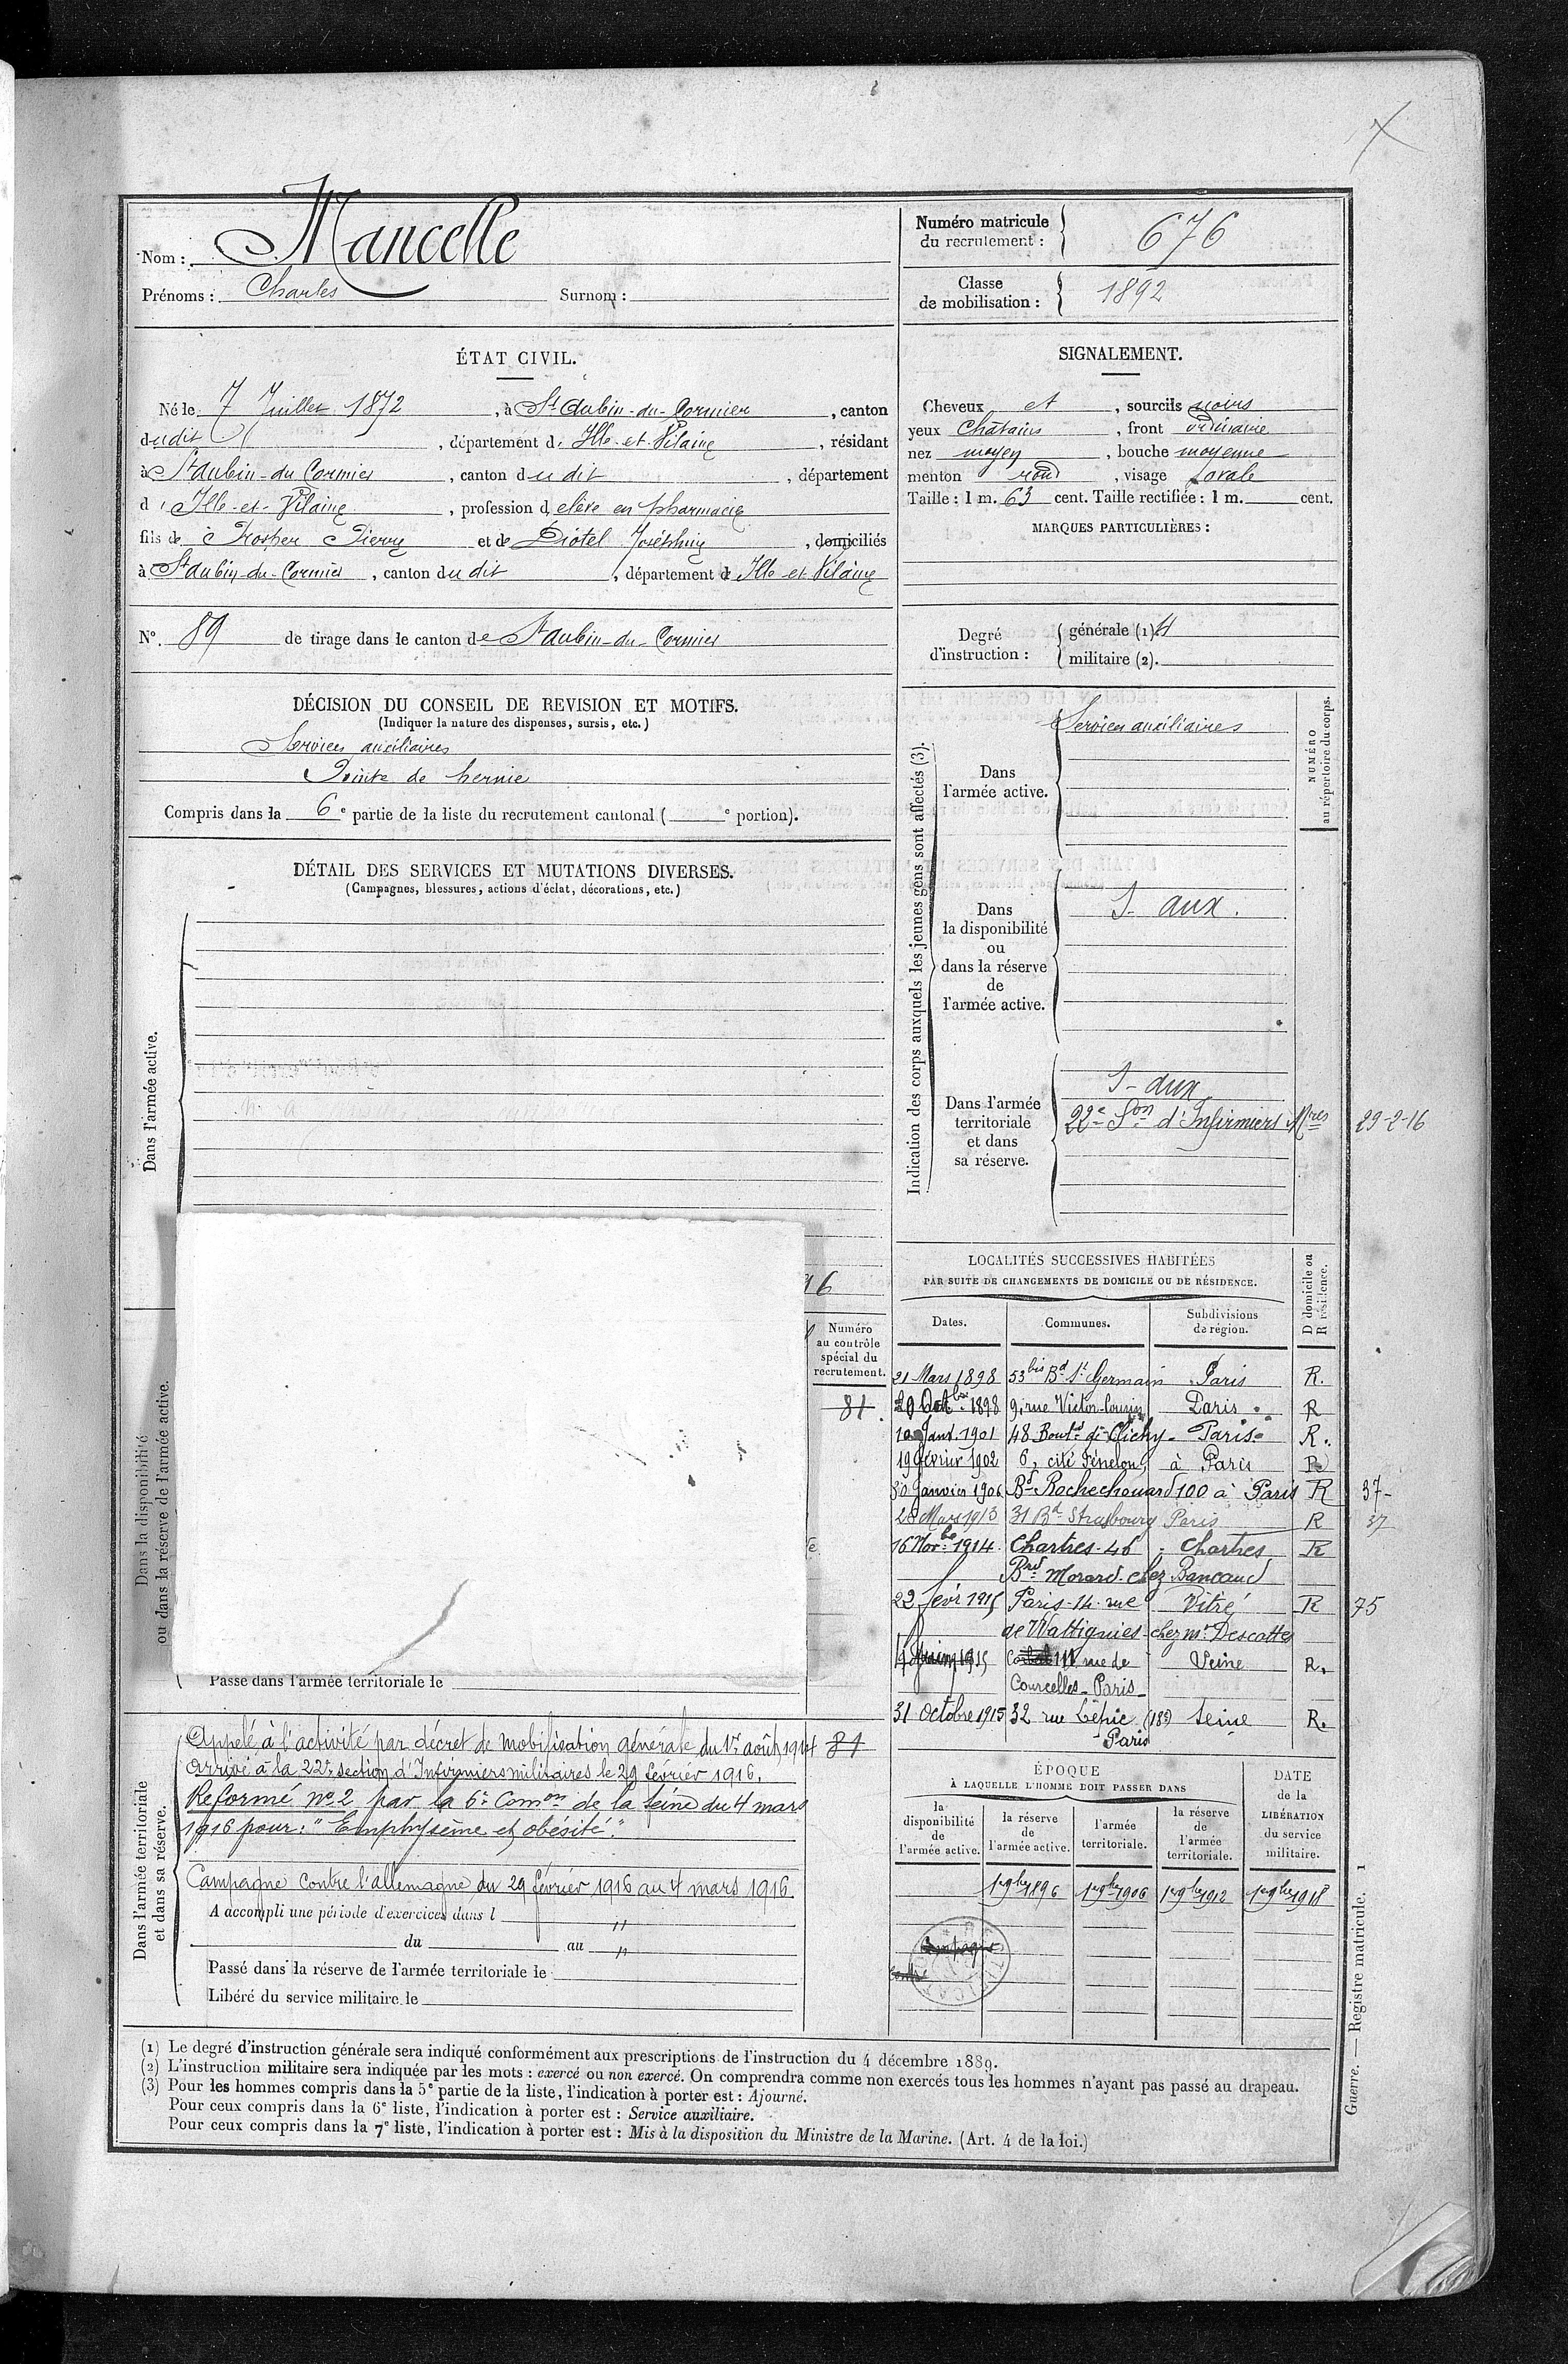 Nom : Mancelle
Prénoms : Charles Surnom :
Numéro matricule du recrutement : 676
Classe de mobilisation : 1892
ÉTAT CIVIL.
Né le 7 Juillet 1872, à St Aubin-du-Cormier, canton
dudit, département d'Ille-et-Vilaine, résidant
à St Aubin-du-Cormier, canton dudit, département
d'Ille-et-Vilaine, profession d'élève en pharmacie
fils de Prosper Pierre et de Diotel Joséphine, domiciliés
à St Aubin-du-Cormier, canton dudit, département d'Ille et Vilaine
N° 89 de tirage dans le canton de St Aubin-du-Cormier
SIGNALEMENT.
Cheveux et, sourcils noirs
yeux Châtains, front ordinaire
nez moyen, bouche moyenne
menton rond, visage ovale
Taille : 1 m. 63 cent. Taille rectifiée : 1 m. cent.
MARQUES PARTICULIÈRES :
Degré d'instruction :
générale (1). 4
militaire (2).
DÉCISION DU CONSEIL DE REVISION ET MOTIFS.
(Indiquer la nature des dispenses, sursis, etc.)
Services auxiliaires
Pointe de hernie
Compris dans la 6e partie de la liste du recrutement cantonal ( e portion).
DÉTAIL DES SERVICES ET MUTATIONS DIVERSES.
(Campagnes, blessures, actions d'éclat, décorations, etc.)
Dans l'armée active.
16
Dans la disponibilité
ou dans la réserve de l'armée active.
Numéro
au contrôle
spécial du
recrutement.
81.
Passé dans l'armée territoriale le
Dans l'armée territoriale
et dans sa réserve.
Appelé à l'activité par décret de mobilisation générale du 1er août 1914 81
Arrivé à la 22e section d'Infirmiers militaires le 29 février 1916.
Réformé No 2 par la 6e Comon de la Seine du 4 mars
1916 pour : "Emphysème et obésité".
Campagne contre l'allemagne du 29 février 1916 au 4 mars 1916.
A accompli une période d'exercices dans l "
du au "
Passé dans la réserve de l'armée territoriale le
Libéré du service militaire le
Indication des corps auxquels les jeunes gens sont affectés (3).
NUMÉRO
au répertoire du corps.
Dans
l'armée active.
Services auxiliaires
Dans
la disponibilité
ou
dans la réserve
de
l'armée active.
S- aux.
Dans l'armée
territoriale
et dans
sa réserve.
S- aux
22e Son d'Infirmiers Mres 29-2-16
LOCALITÉS SUCCESSIVES HABITÉES
PAR SUITE DE CHANGEMENTS DE DOMICILE OU DE RÉSIDENCE.
D domicile ou
R résidence.
Dates. Communes. Subdivisions de région.
21 Mars 1898 53 bis Bd St Germain Paris R.
20 Octbre 1898 9, rue Victor Cousin Paris R
10 Janv. 1901 48 Boud de Clichy - Paris R.
19 février 1902 6, cité Fénelon, à Paris R
30 Janvier 1906 Bd Rochechouard 100 à Paris R 37-
28 Mars 1913 31 Bd Strasbourg Paris R 37
16 Novbre 1914 Chartres-46 Chartres R
Brd Morard chez Bancaud
22 févr 1915 Paris-14 rue Vitré R 75
de Wattignies chez mr Descottes
1915 111 rue de Seine R.
Courcelles-Paris
31 Octobre 1915 32 rue Lepic (18e) Seine R.
Paris
ÉPOQUE
À LAQUELLE L'HOMME DOIT PASSER DANS
DATE
de la
LIBÉRATION
du service
militaire.
la disponibilité de l'armée active.
la réserve de l'armée active.
l'armée territoriale.
la réserve de l'armée territoriale.
1er 9bre 1896 1er 9bre 1906 1er 9bre 1912 1er 9bre 1918
Campagne
contre
(1) Le degré d'instruction générale sera indiqué conformément aux prescriptions de l'instruction du 4 décembre 1889.
(2) L'instruction militaire sera indiquée par les mots : exercé ou non exercé. On comprendra comme non exercés tous les hommes n'ayant pas passé au drapeau.
(3) Pour les hommes compris dans la 5e partie de la liste, l'indication à porter est : Ajourné.
Pour ceux compris dans la 6e liste, l'indication à porter est : Service auxiliaire.
Pour ceux compris dans la 7e liste, l'indication à porter est : Mis à la disposition du Ministre de la Marine. (Art. 4 de la loi.)
Guerre. — Registre matricule. 1